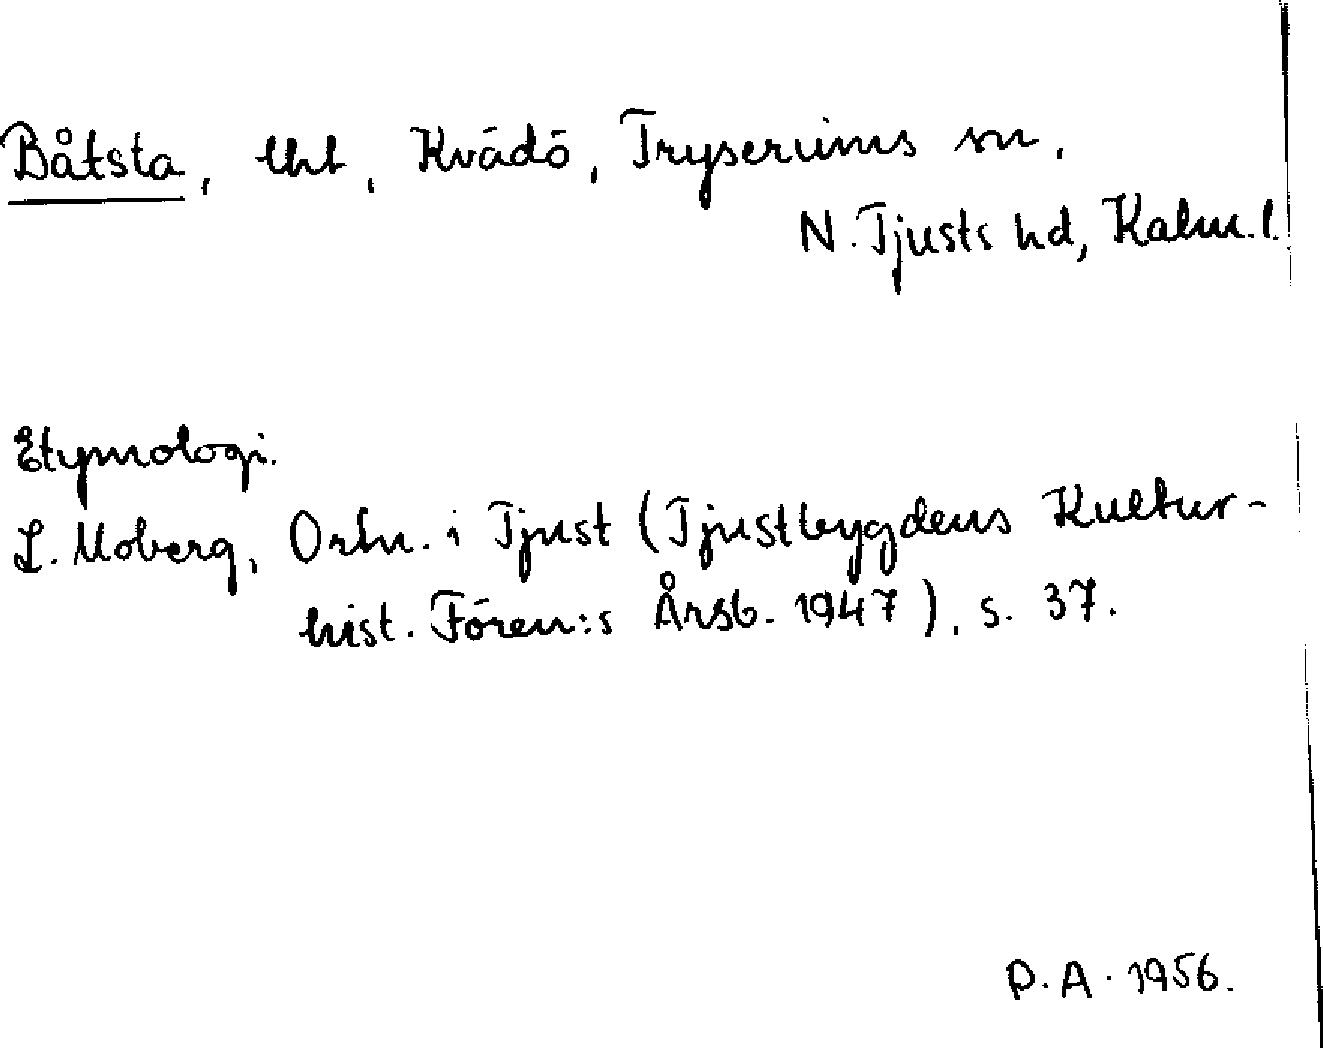 Båtsta, tht, Kvädö, Tryserums sn,
N. Tjusts hd, Kalm. l.
Etymologi.
L. Moberg, Ortn. i Tjust (Tjustbygdens Kultur-
hist. Fören:s Årsb. 1947), s. 37.
P.A. 1956.